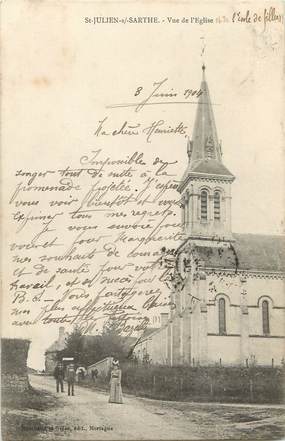 St-JULIEN-s/-SARTHE. - Vue de l'Eglise et de l'école de filles
3 Juin 1904
Ma chère Henriette,
Impossible de
songer tout de suite à la
promenade projetée. J'espère
vous voir bientôt et vous
exprimer tous mes regrets.
Je vous envoie pour
vous et pour Marguerite
mes souhaits de
et de santé pour votre
travail, et de succès pour le
B. S. - Vous partagerez
mes plus
avec toute
M.
édit., Mortagne